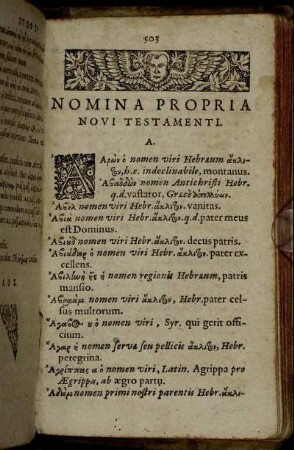 503
NOMINA PROPRIA
NOVI TESTAMENTI.
A.
Ααρὼν ὁ nomen viri Hebraum ἄκλι-
τον, h.e. indeclinabile, montanus.
Ἀβαδδὼν nomen Antichristi Hebr.
q.d. vastator, Græcè
Αβελ nomen viri Hebr. ἄκλιτον. vanitas.
Αβιὰ nomen viri Hebr. ἄκλιτον. q.d. pater meus
est Dominus.
Αβιὰδ nomen viri Hebr. ἄκλιτον. decus patris.
nomen viri Hebr. ἄκλιτον. pater ex-
cellens.
Αβιληνὴ ῆς ἡ nomen regionis Hebræum, patris
mansio.
Αβραὰμ nomen viri ἄκλιτον, Hebr. pater cel-
sus multorum.
ὁ nomen viri, Syr. qui gerit offi-
cium.
Αγαρ ἡ nomen servæ seu pellicis ἄκλιτον, Hebr.
peregrina.
Αγρίππας α ὁ nomen viri, Latin. Agrippa pro
Ægrippa, ab ægro partu.
Αδὰμ nomen primi nostri parentis Hebr. ἄκλι-